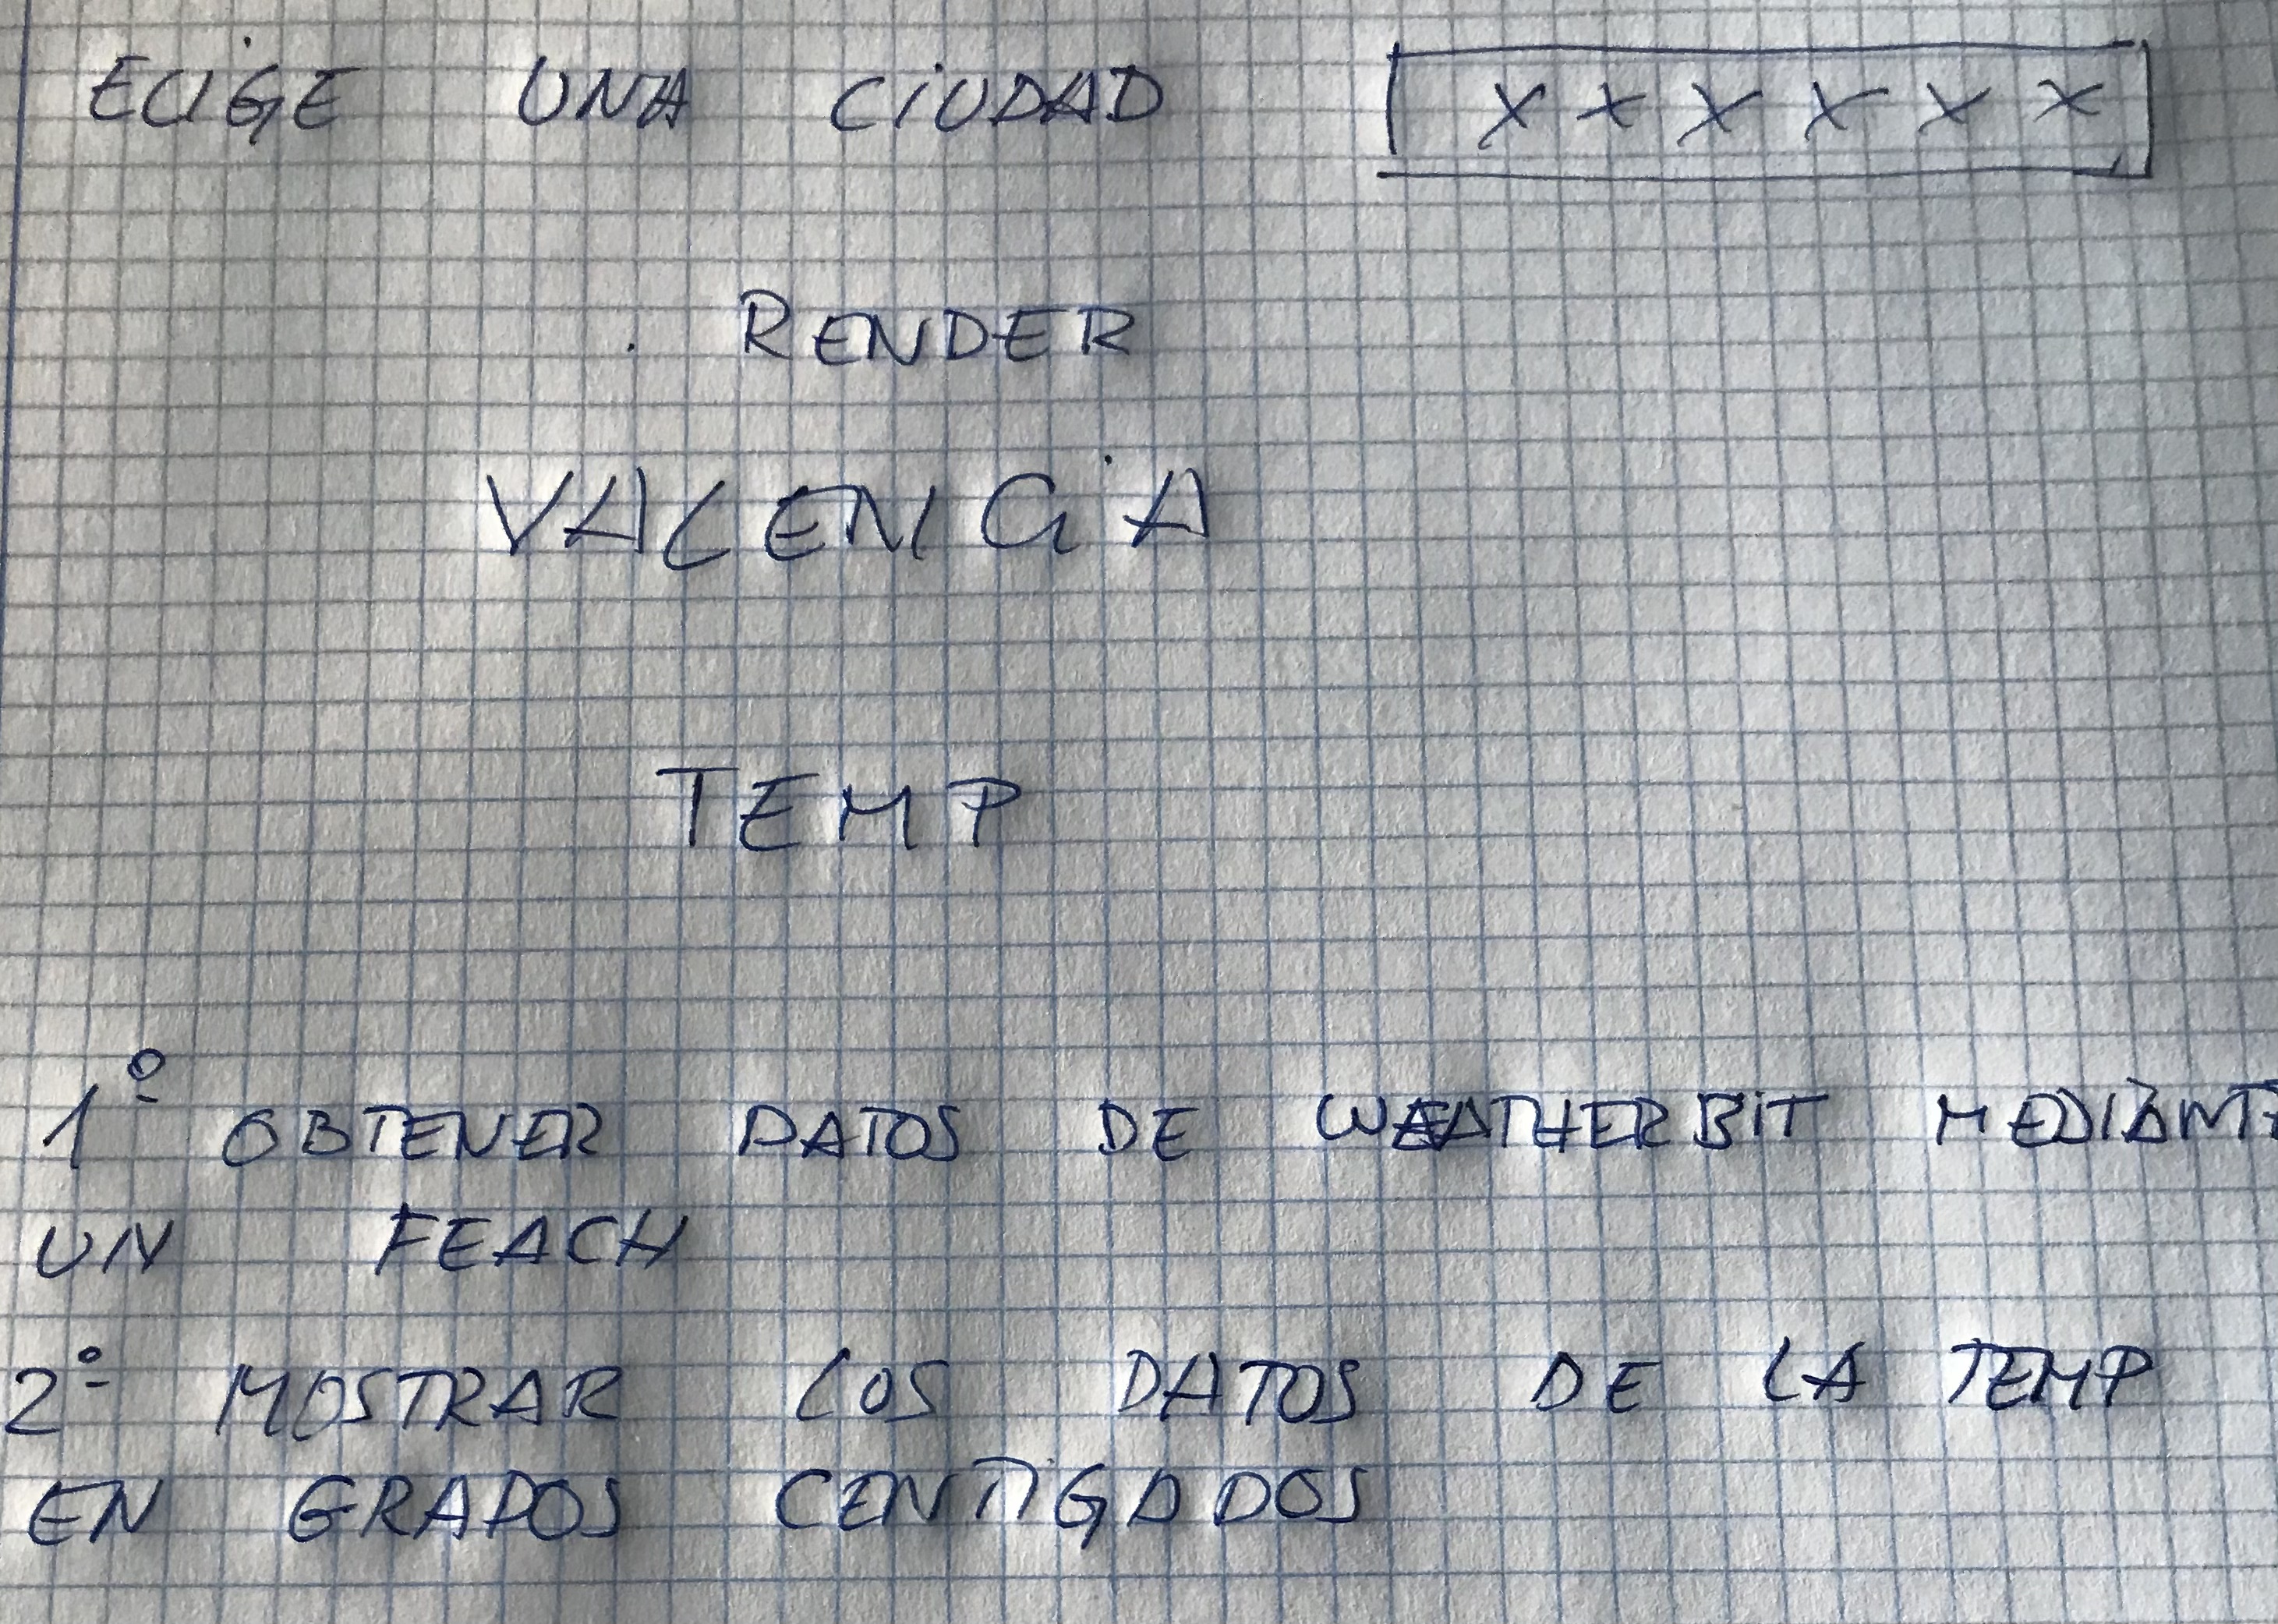 ELIGE UNA CIUDAD XXXXXX
. RENDER
VALENCIA
TEMP
1º OBTENER DATOS DE WEATHERBIT MEDIANTE
UN FEACH
2º MOSTRAR LOS DATOS DE LA TEMP
EN GRADOS CENTIGADOS